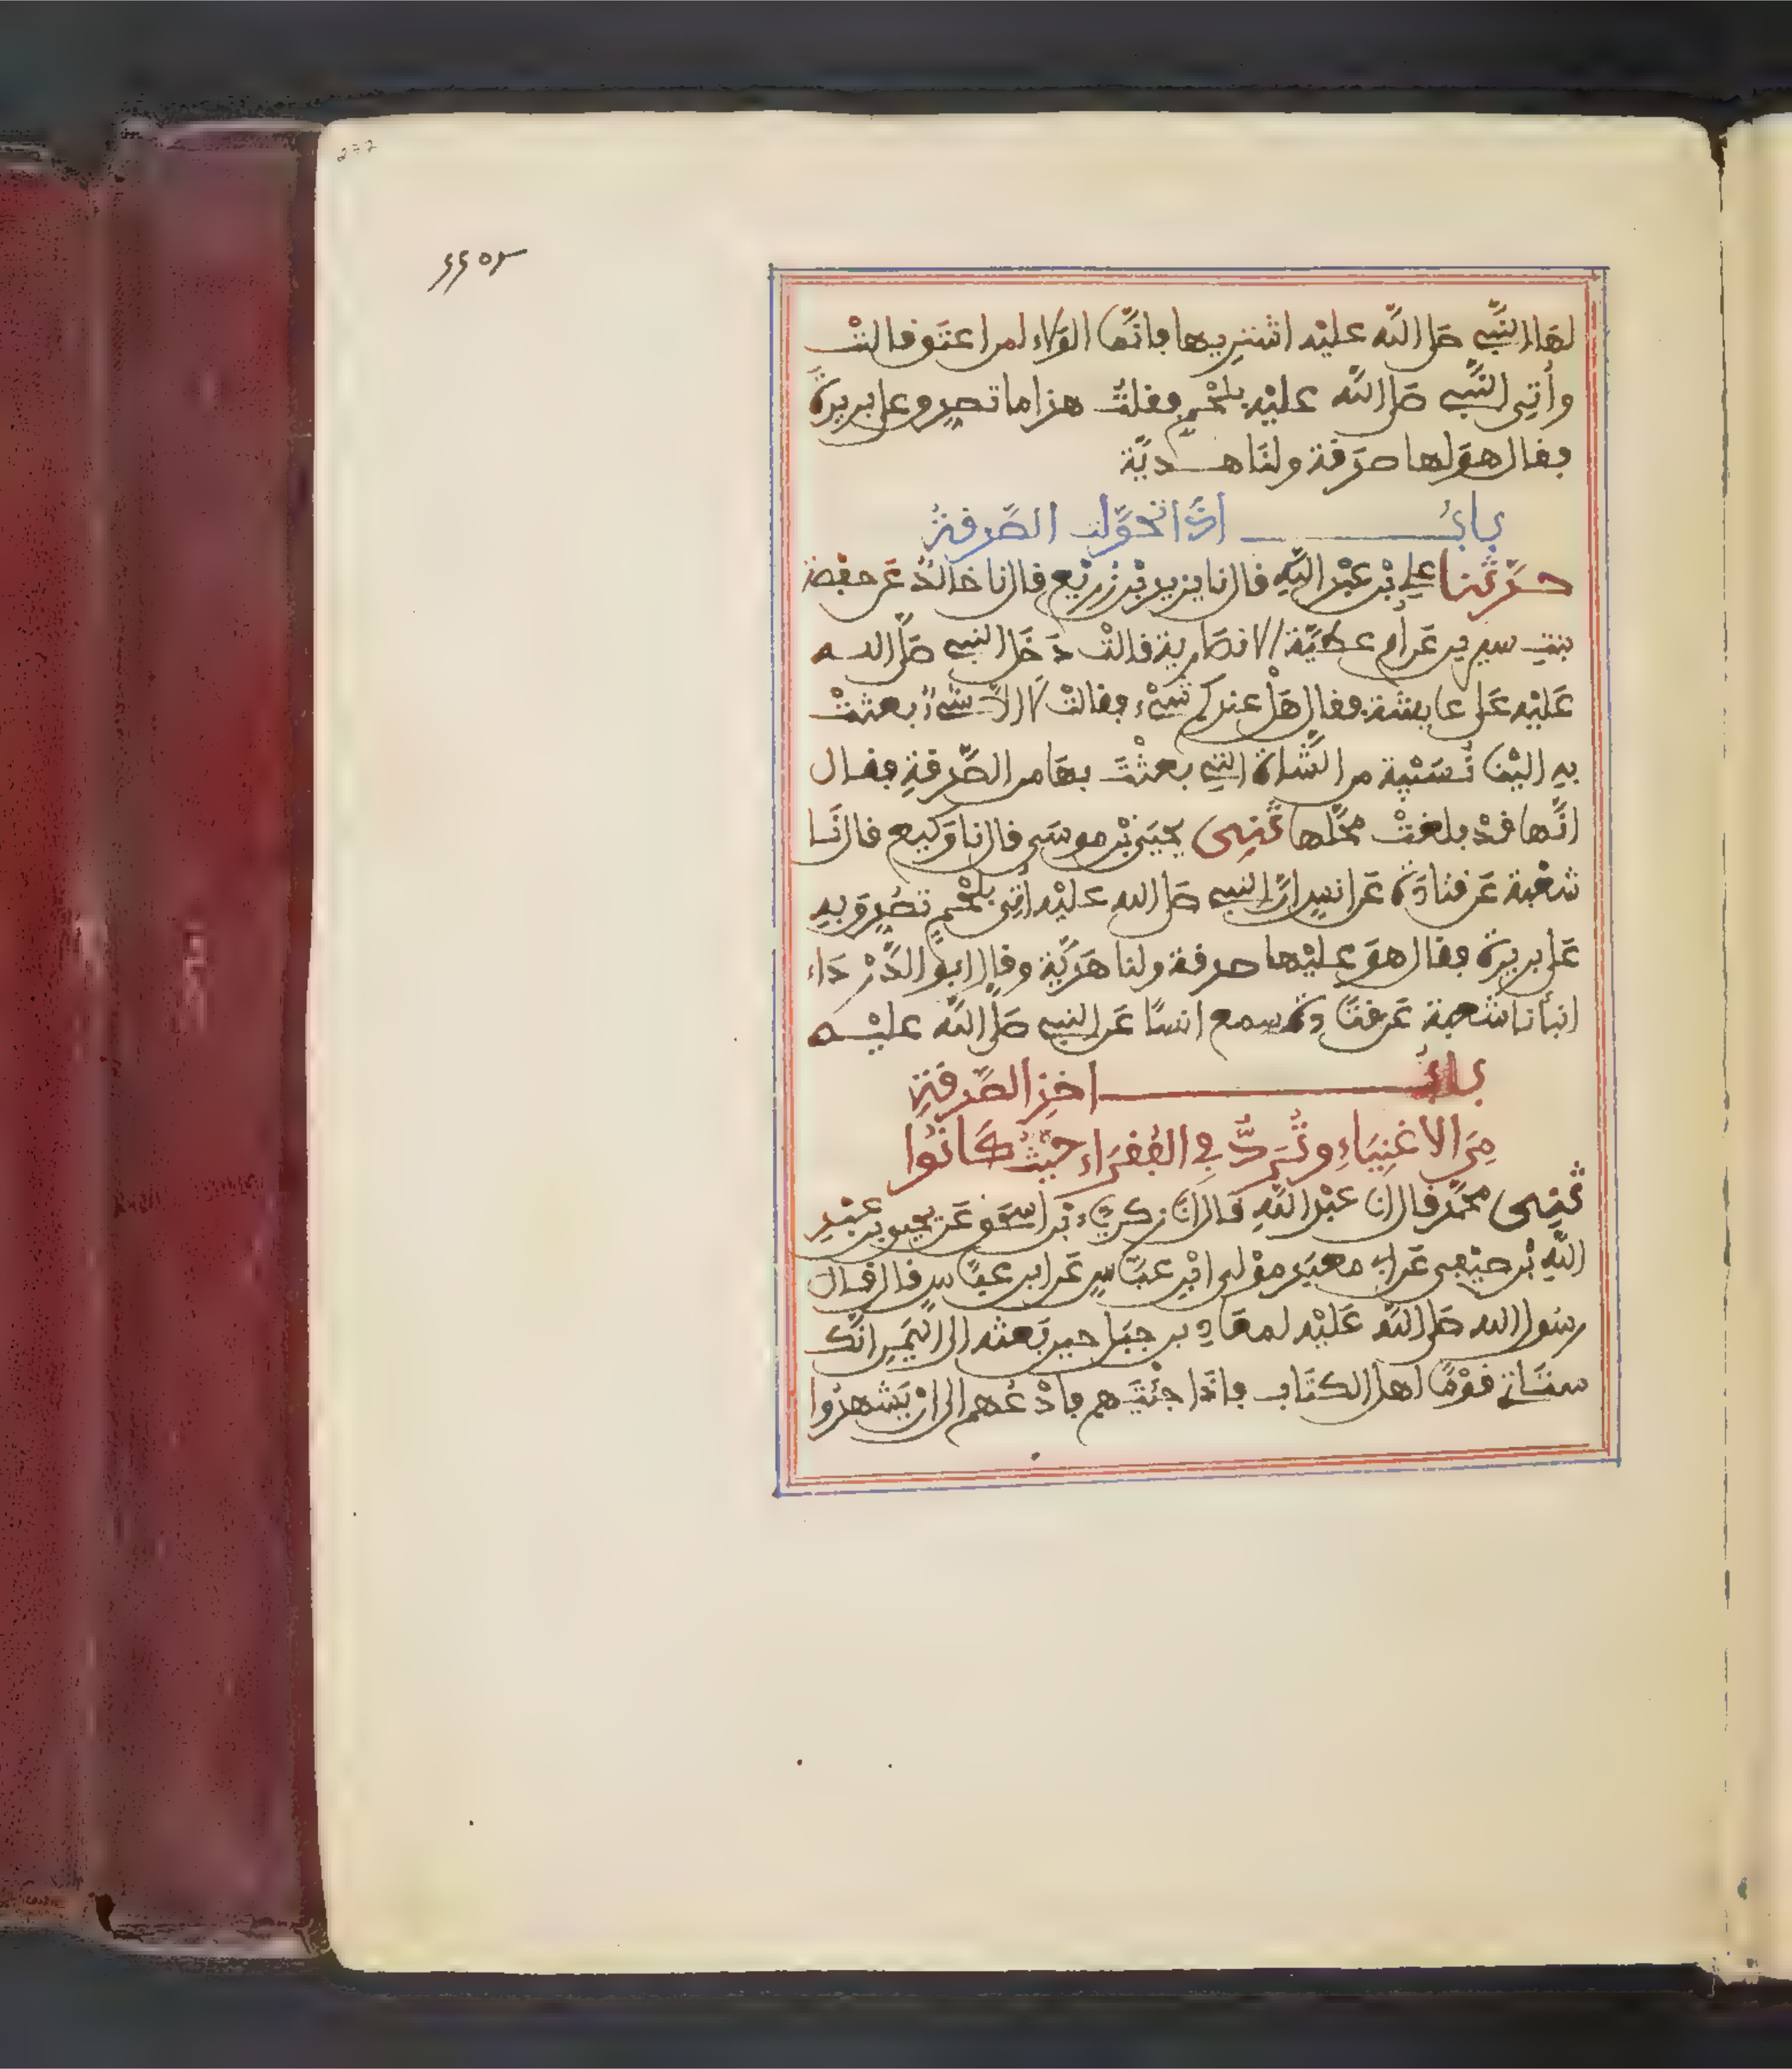 ٢٣٢
لها النَّبِي صلى اللَّه عليْه اشترِيها فانَّما الوَلاء لمن اعتَق قالتْ
وأتِي النَّبِي صَلى اللَّه عليْه بلحْمٍ فقلتُ هذا ما تصدِّق على بريرة
فقال هوَ لها صدَقة ولنَا هديَّة
بابُ اذا تحوَّلت الصَّدقةُ
حدَّثنا علي بْن عبْد اللَّهِ قال نا يزيد بْن زريْع قال نا خالدٌ عَن حفصَة
بنتِ سيرين عَن أم عطيَّة الانصَارية قالتْ دَخَل النبي صَلَّى اللـه
عَليْه عَلى عايشة فقال هَلْ عندكم شيْء فقالتْ لا الاَّ شيْءٌ بعثتْ
به اليْنا نُسَيْبة من الشَّاة التي بعثْتَ بهَا من الصَّدقةِ فقال
انَّها قدْ بلغتْ محَلَّها ثنِي يحيَى بْن موسَى قال نا وَكيع قال نَا
شعْبة عَن قتادَة عَن انسٍ انَّ النبي صَلى الله عليْه أتِي بلحْمٍ تصُدِّقَ بِه
عَلى بريرة فقال هوَ عليْها صدقة ولنا هَديَّة وقال ابو الدَّرْدَاء
انبأنا شعبة عَن قتَادة سمع انسًا عَن النبي صَلَّى اللَّه عليْـه
بابُ اخذِ الصَّدقَةِ
مِنَ الاغنِيَاءِ وتُرَدُّ فِي الفُقَرَاء حيْثُ كَانُوا
ثنِي محمَّد قال انا عبْد اللَّهِ قال انا زكرياء بْن اسحَق عَن يحيى بن عبْدِ
اللَّهِ بْن صيْفِي عَن ابِي معبَد موْلى ابْن عبَّاسٍ عَن ابن عبَّاسٍ قال قال
رسُول الله صَلى اللَّه عَليْه لمعَاذ بن جبَل حين بَعثه الى اليَمَنِ انَّك
ستَأتِي قوْمًا اهل الكتَاب فاذَا جئْتَهم فادْعُهم الى انْ يَشهدُوا